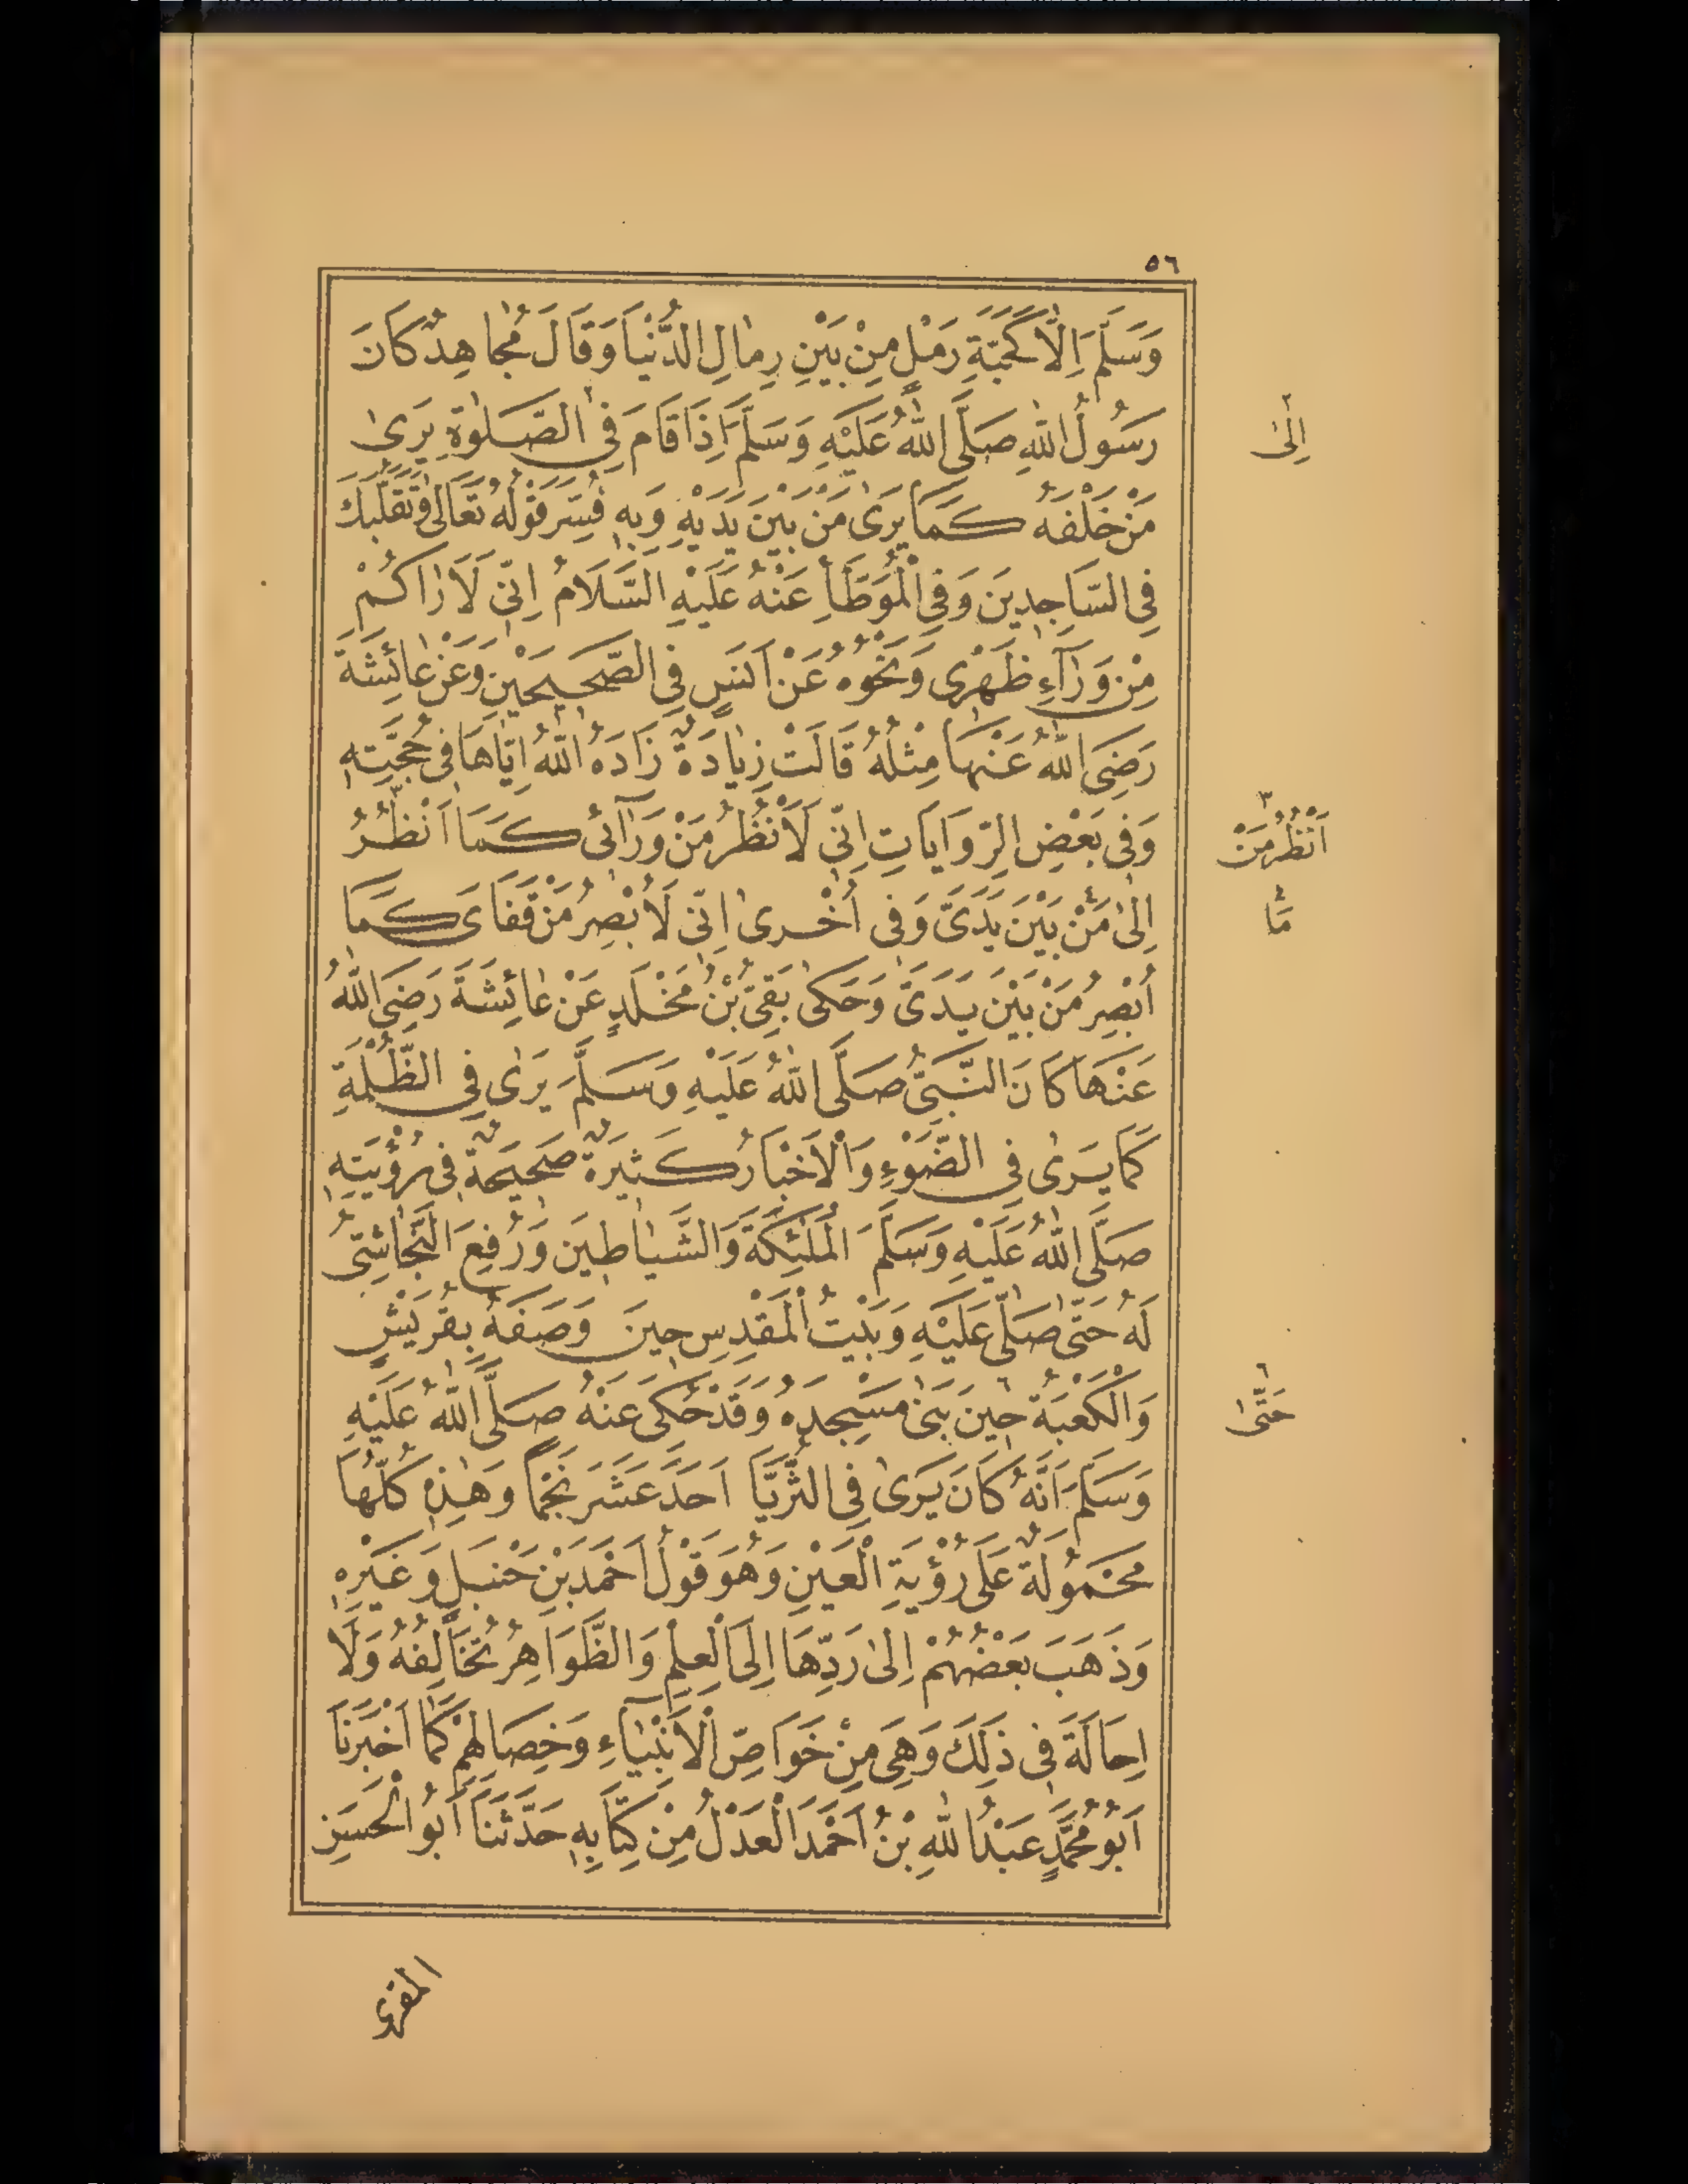 ٥٦
وَسَلَّمَ اِلَّا كَحَبَّةِ رَمْلٍ مِنْ بَيْنِ رِمَالِ الدُّنْيَا وَقَالَ مُجَاهِدٌ كَانَ
رَسُولُ اللّٰهِ صَلَّى اللّٰهُ عَلَيْهِ وَسَلَّمَ اِذَا قَامَ فِى الصَّلٰوةِ يَرٰى
مَنْ خَلْفَهُ كَمَا يَرٰى مَنْ بَيْنَ يَدَيْهِ وَبِهِ فُسِّرَ قَوْلُهُ تَعَالٰى وَتَقَلُّبَكَ
فِى السَّاجِدِينَ وَفِى الْمُوَطَّأِ عَنْهُ عَلَيْهِ السَّلَامُ اِنِّى لَاَرَاكُمْ
مِنْ وَرَآءِ ظَهْرِى وَنَحْوُهُ عَنْ اَنَسٍ فِى الصَّحِيحَيْنِ وَعَنْ عَائِشَةَ
رَضِىَ اللّٰهُ عَنْهَا مِثْلُهُ قَالَتْ زِيَادَةٌ زَادَهُ اللّٰهُ اِيَّاهَا فِى حُجَّتِهِ
وَفِى بَعْضِ الرِّوَايَاتِ اِنِّى لَاَنْظُرُ مَنْ وَرَآئِى كَمَا اَنْظُرُ
اِلٰى مَنْ بَيْنَ يَدَىَّ وَفِى اُخْرٰى اِنِّى لَاُبْصِرُ مَنْ قَفَاىَ كَمَا
اُبْصِرُ مَنْ بَيْنَ يَدَىَّ وَحَكٰى بَقِىُّ بْنُ مَخْلَدٍ عَنْ عَائِشَةَ رَضِىَ اللّٰهُ
عَنْهَا كَانَ النَّبِىُّ صَلَّى اللّٰهُ عَلَيْهِ وَسَلَّمَ يَرٰى فِى الظُّلْمَةِ
كَمَا يَرٰى فِى الضَّوْءِ وَالْاَخْبَارُ كَثِيرَةٌ صَحِيحَةٌ فِى رُؤْيَتِهِ
صَلَّى اللّٰهُ عَلَيْهِ وَسَلَّمَ الْمَلٰئِكَةَ وَالشَّيَاطِينَ وَرُفِعَ النَّجَاشِىُّ
لَهُ حَتّٰى صَلّٰى عَلَيْهِ وَبَيْتُ الْمَقْدِسِ حِينَ وَصَفَهُ لِقُرَيْشٍ
وَالْكَعْبَةُ حِينَ بَنٰى مَسْجِدَهُ وَقَدْ حُكِىَ عَنْهُ صَلَّى اللّٰهُ عَلَيْهِ
وَسَلَّمَ اَنَّهُ كَانَ يَرٰى فِى الثُّرَيَّا اَحَدَ عَشَرَ نَجْمًا وَهٰذِهِ كُلُّهَا
مَحْمُولَةٌ عَلٰى رُؤْيَةِ الْعَيْنِ وَهُوَ قَوْلُ اَحْمَدَ بْنِ حَنْبَلٍ وَغَيْرِهِ
وَذَهَبَ بَعْضُهُمْ اِلٰى رَدِّهَا اِلَى الْعِلْمِ وَالظَّوَاهِرُ تُخَالِفُهُ وَلَا
اِحَالَةَ فِى ذٰلِكَ وَهِىَ مِنْ خَوَاصِّ الْاَنْبِيَآءِ وَخِصَالِهِمْ كَمَا اَخْبَرَنَا
اَبُو مُحَمَّدٍ عَبْدُ اللّٰهِ بْنُ اَحْمَدَ الْعَدْلُ مِنْ كِتَابِهِ حَدَّثَنَا اَبُو الْحَسَنِ
المقرى
٢
اِلٰى
٣
اَنْظُرُ مَنْ
مَا
٦
حَتّٰى